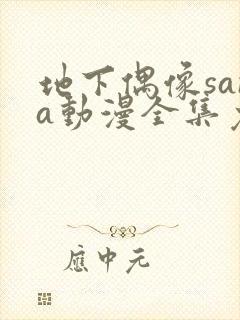 地下偶像sa
a動漫全集
應中元